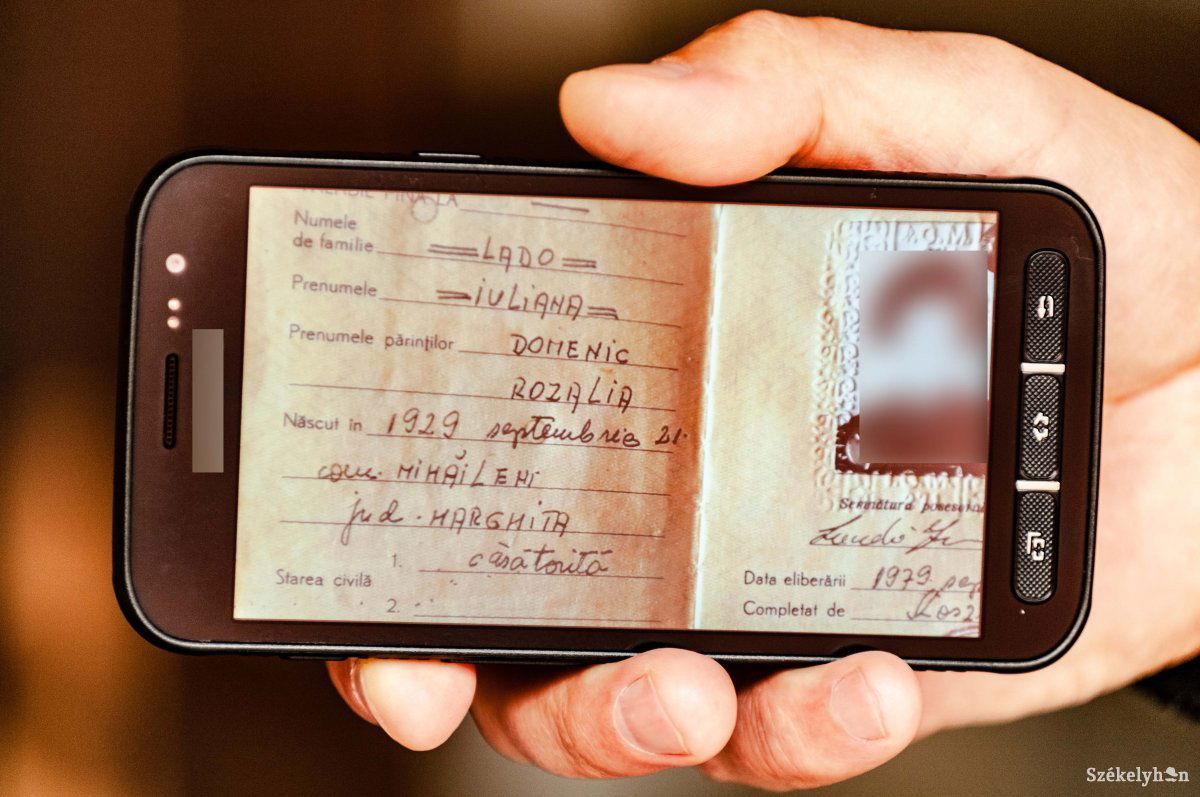 Numele
de familie LADO
Prenumele IULIANA
Prenumele părinților DOMENIC
ROZALIA
Născut în 1929 septembrie 21.
com. MIHĂILENI
jud. HARGHITA
1. căsătorită
Starea civilă
2.
R.O.M
Semnătura posesoru
Data eliberării 1979 sep
Completat de
Székelyhon